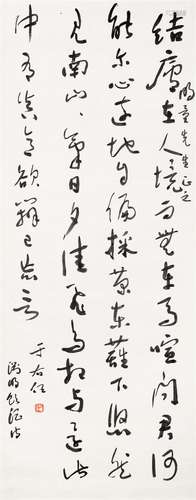 結廬在人境而無車馬喧問君何
先生正之
能爾心遠地自偏採菊東籬下悠然
見南山〻氣日夕佳飛鳥相與還此
中有真意欲辯已忘言
于右任
淵明飲酒詩